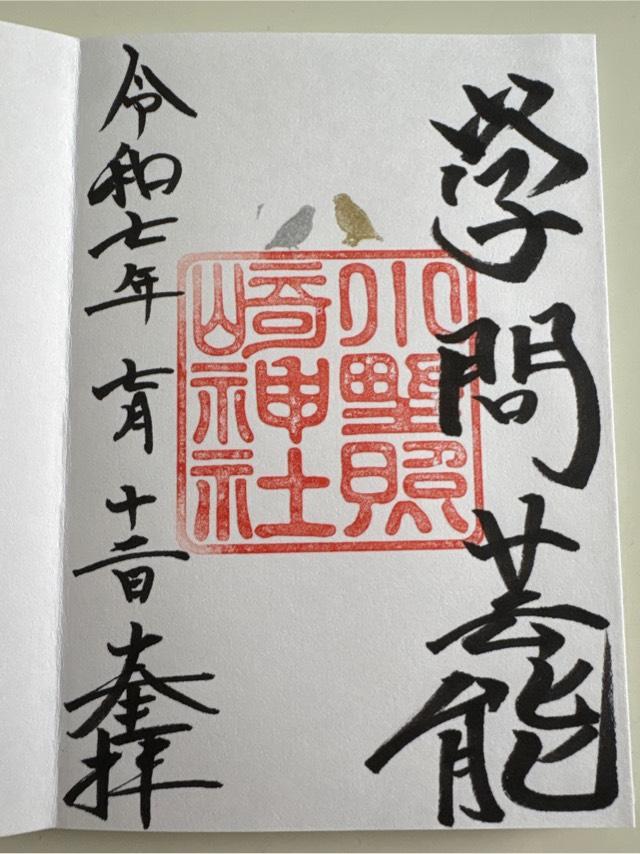 学問芸能
小野照
崎神社
令和七年 七月 十二日 奉拝